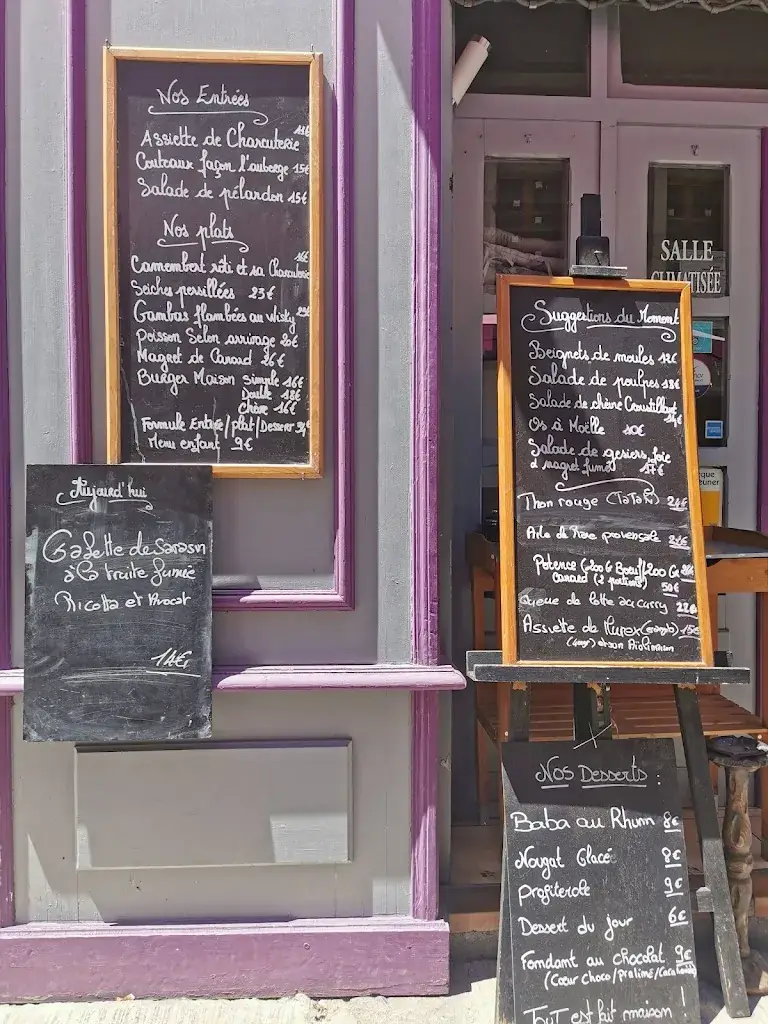 Nos Entrées
Assiette de Charcuterie
Couteaux façon l'auberge 15€
Salade de pélardon 15€
Nos plats
Camembert rôti et sa Charcuterie 16€
Seiches persillées 23€
Gambas flambées au wisky 25€
Poisson Selon arrivage 20€
Magret de Canard 26€
Burger Maison simple 16€
Double 18€
Chèvre 16€
Formule Entrée/plat/Dessert
Menu enfant 9€
Aujourd'hui
Galette de Sarasin
à la truite fumée
Ricotta et Avocat
14€
SALLE
CLIMATISÉE
Suggestions du Moment
Beignets de moules 12€
Salade de poulpes 18€
Salade de chèvre Croustillant 14€
Os à Moëlle 10€
Salade de gesiers, foie
et magret fumé 17€
Thon rouge (TATAKI) 24€
Aile de Raie provençale
Potence (200G Boeuf/200G
Canard (2 portions) 50€
Queue de lotte au curry 22€
Assiette de Murex 15€
Nos Desserts :
Baba au Rhum 8€
Nougat Glacé 8€
Profiterole 9€
Dessert du jour 6€
Fondant au chocolat 9€
(Cœur choco/praliné/
Tout est fait maison !